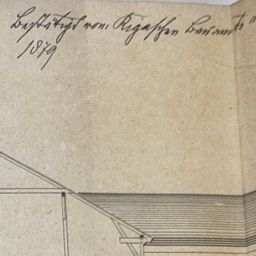 Bestätigt vom Rigaschen Bauamte
1879